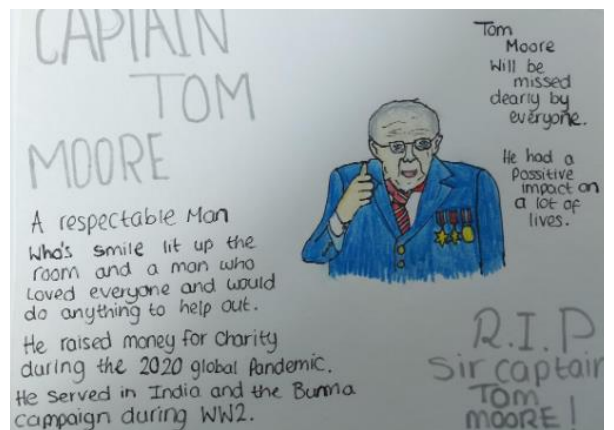 CAPTAIN
TOM
MOORE
A respectable Man
Who's smile lit up the
room and a man who
loved everyone and would
do anything to help out.
He raised money for Charity
during the 2020 global Pandemic.
He served in India and the Burma
campaign during WW2.
Tom
Moore
Will be
missed
dearly by
everyone.
He had a
possitive
impact on
a lot of
lives.
R.I.P
Sir captain
TOM
MOORE!